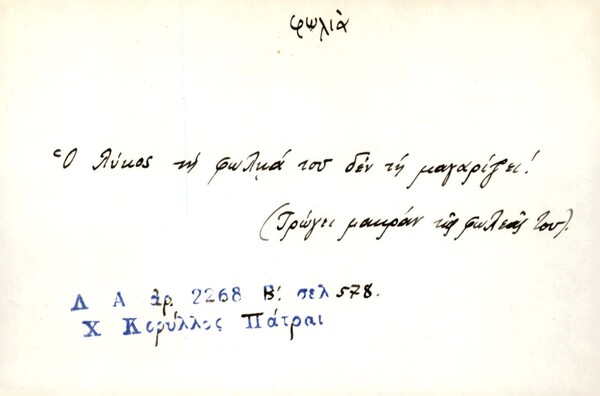 φωλιὰ
Ὁ λύκος τὴ φωλιά του δὲν τὴ μαγαρίζει!
(Τρώγει μακρὰν τῆς φωλεᾶς του).
Δ Α ἀρ. 2268 Β΄. σελ 578.
Χ Κορύλλος Πάτραι